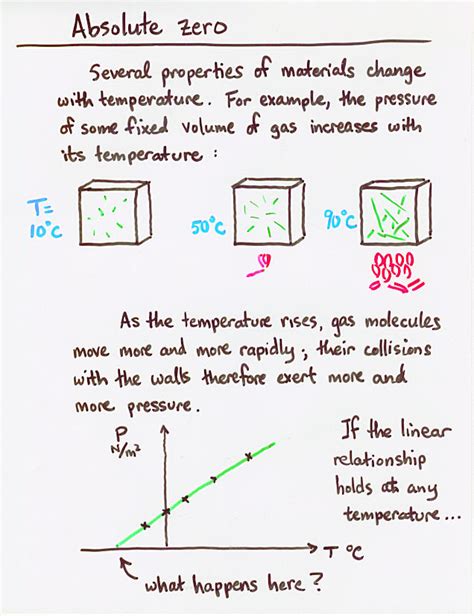 Absolute zero
Several properties of materials change
with temperature. For example, the pressure
of some fixed volume of gas increases with
its temperature :
T=
10°C
50°C
90°C
As the temperature rises, gas molecules
move more and more rapidly; their collisions
with the walls therefore exert more and
more pressure.
P
N/m²
If the linear
relationship
holds at any
temperature...
T °C
what happens here?